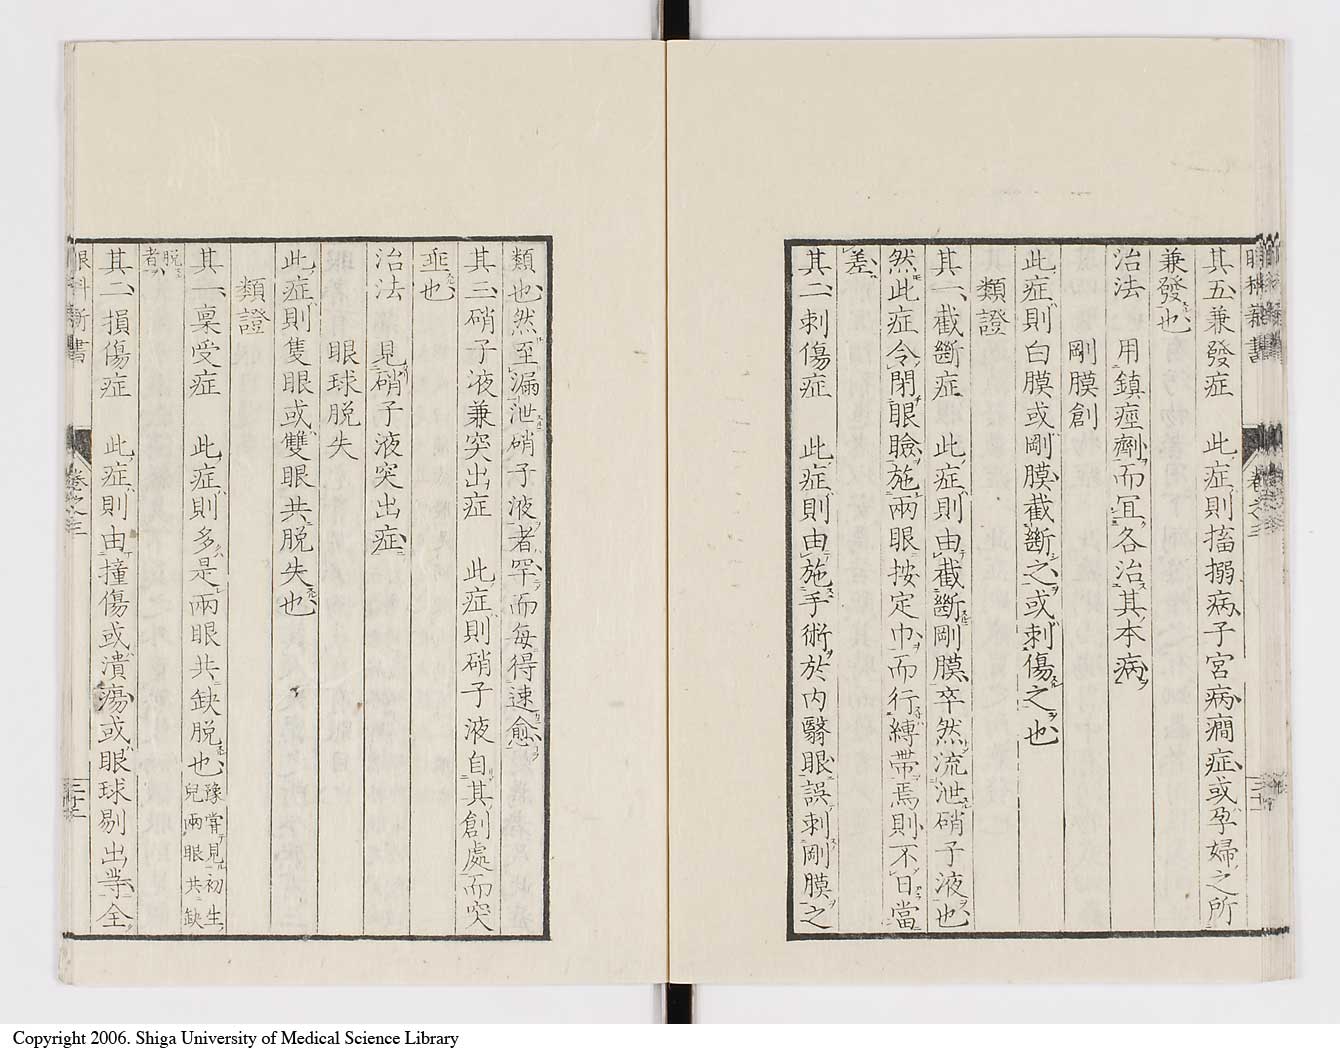 其五、兼發症　此症則搐搦病、子宮病、癇症、或孕婦之所
兼發也
治法　用鎮痙劑而宜各治其本病
剛膜創
此症則白膜或剛膜截斷之或刺傷之也
類證
其一、截斷症　此症則由截斷剛膜、卒然流泄硝子液也、
然此症令閉眼瞼、施兩眼按定巾而行縛帶焉、則不日當
差、
其二、刺傷症　此症則由施手術於内翳眼誤刺剛膜之
眼科新書
卷之三
類也、然至漏泄硝子液者罕、而每得速愈
其三、硝子液兼突出症　此症則硝子液自其創處而突
垂也
治法　見硝子液突出症
眼球脱失
此症則隻眼或雙眼共脱失也
類證
其一、稟受症　此症則多是兩眼共缺脱也、豫嘗見初生
兒兩眼共缺
脱
者
其二、損傷症　此症則由撞傷或潰瘍、或眼球剔出等、全
眼科新書
卷之三
Copyright 2006. Shiga University of Medical Science Library